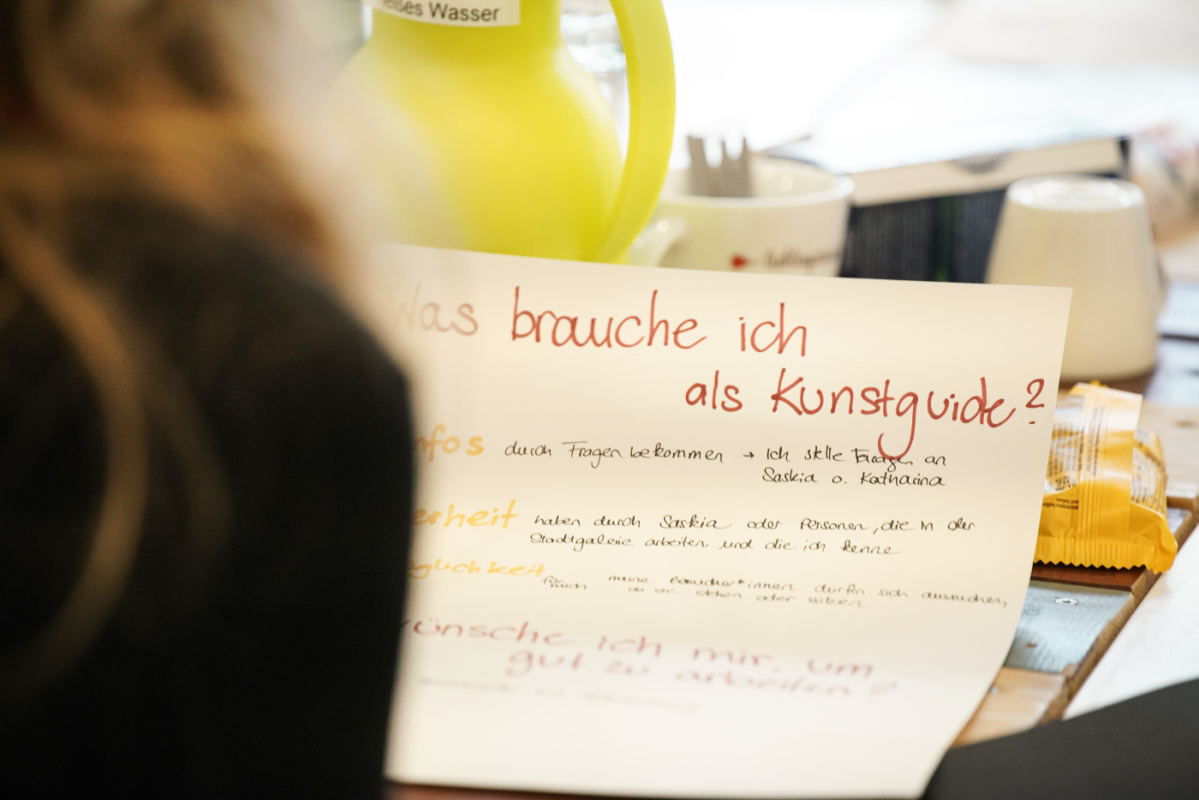 eißes Wasser
Was brauche ich
als Kunstguide?
nfos durch Fragen bekommen → Ich stelle Fragen an
Saskia o. Katharina
erheit haben durch Saskia oder Personen, die in der
Stadtgalerie arbeiten und die ich kenne
glichkeit für mich meine Besucher*innen dürfen sich aussuchen,
ob sie stehen oder sitzen
ünsche ich mir, um
gut zu arbeiten?